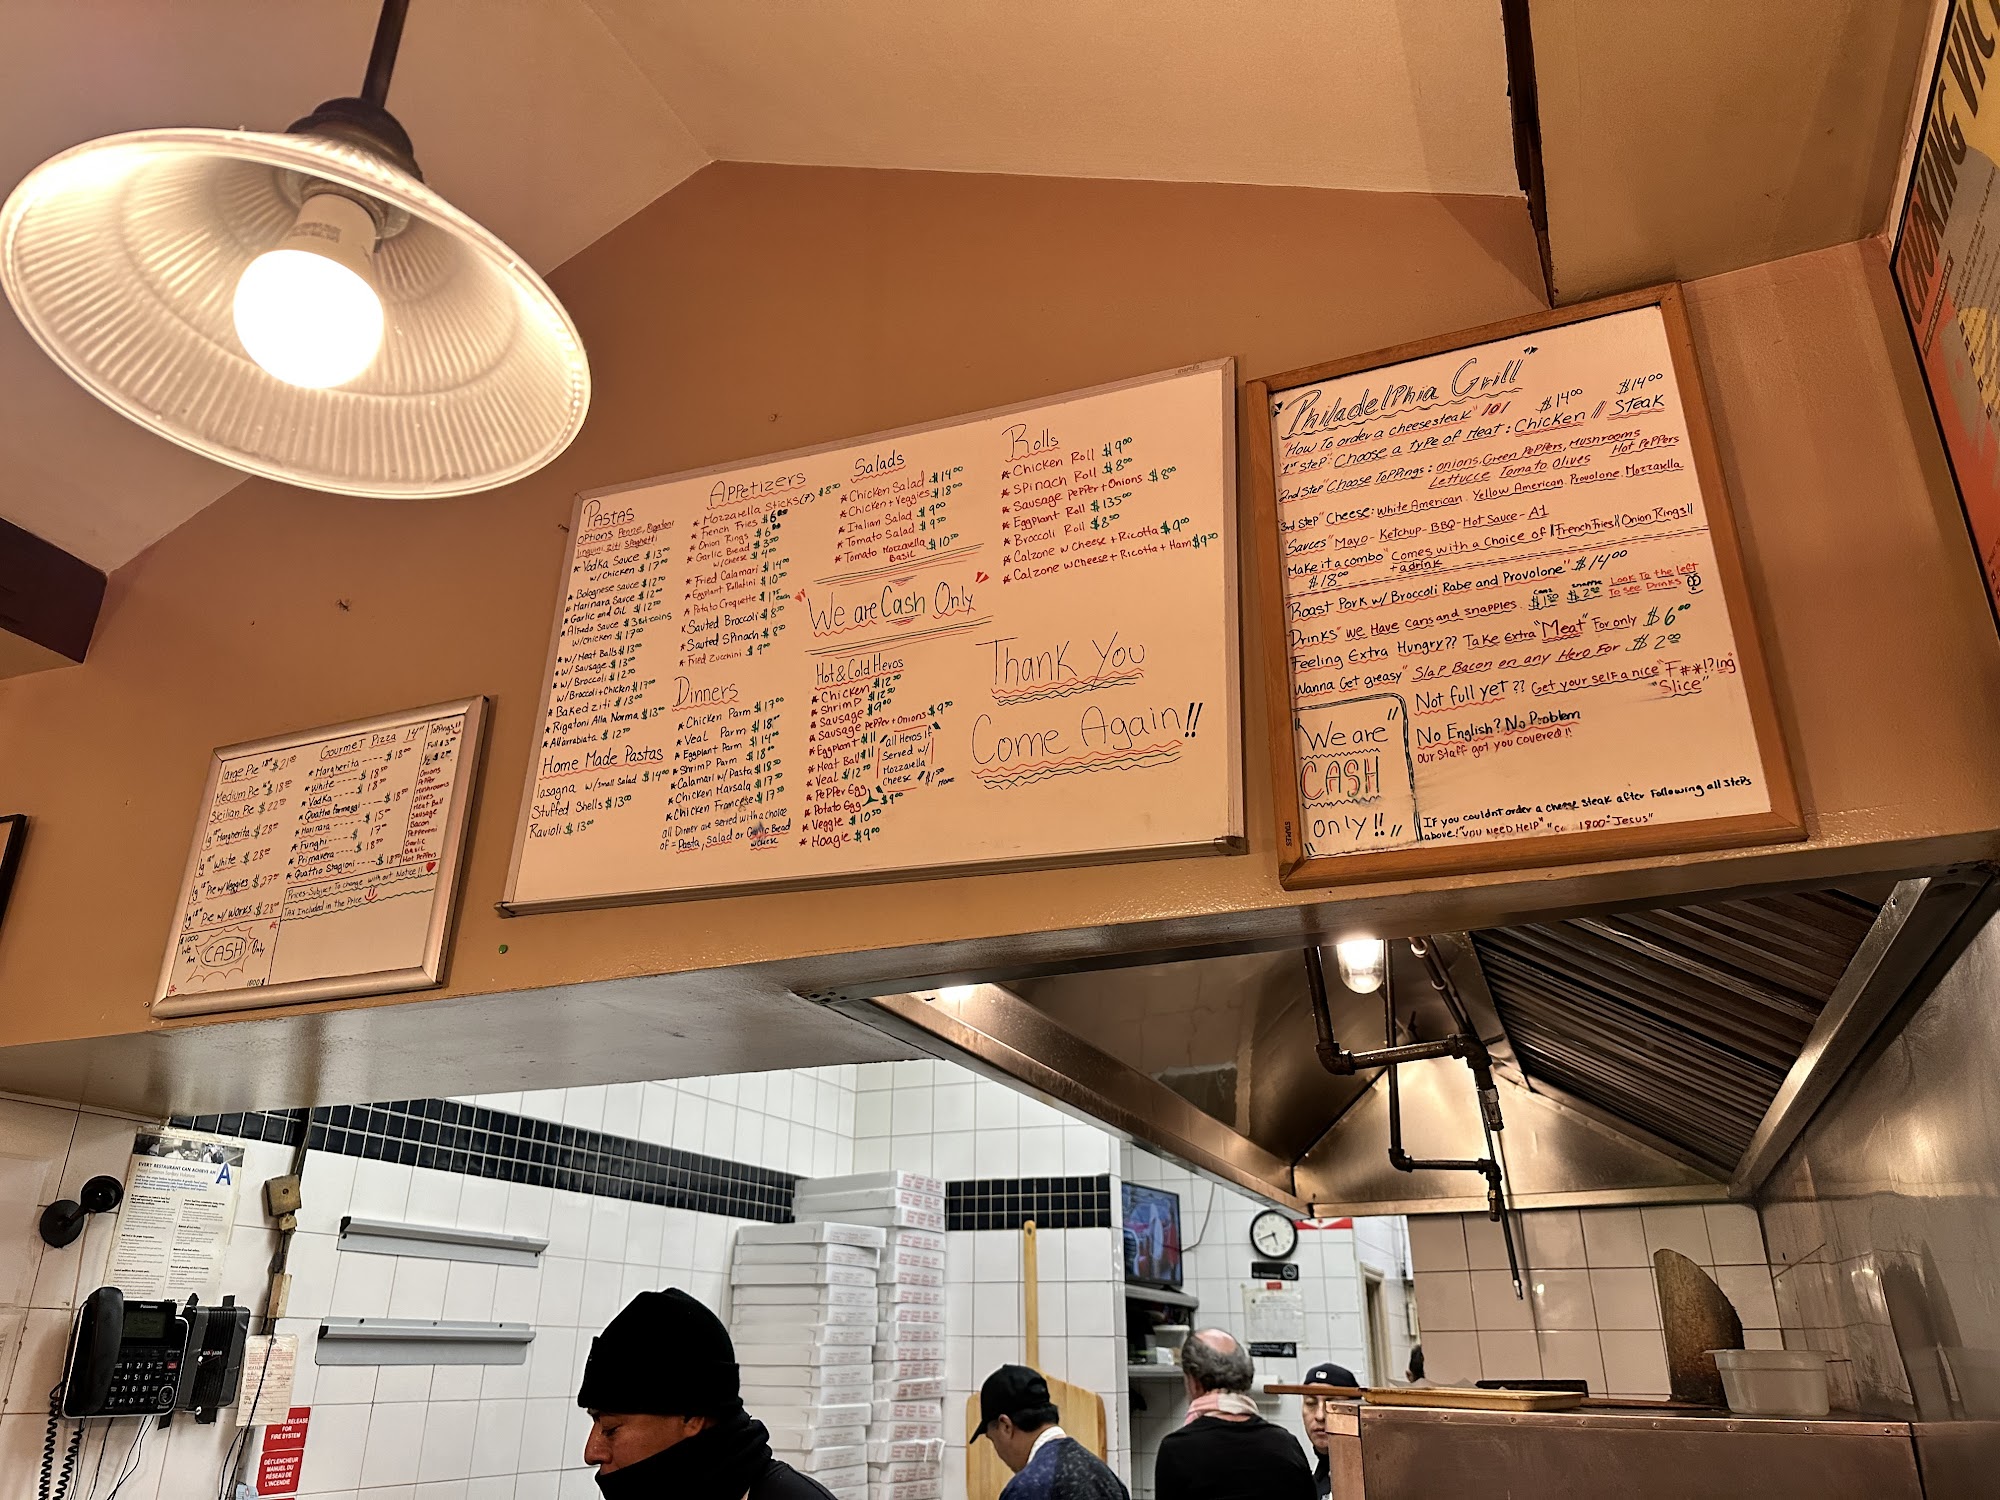 Large Pie 18" $21⁰⁰
Medium Pie 16" $18⁰⁰
Sicilian Pie $22⁰⁰
lg 18" Margherita $28⁰⁰
lg 18" White $28⁰⁰
lg 18" Pie w/ Veggies $27⁰⁰
lg 18" Pie w/ works $28⁰⁰
We Are CASH Only
Gourmet Pizza 14"
* Margherita --- $18⁰⁰
* White ---- $18⁰⁰
* Vodka ---- $18⁰⁰
* Quattro Formaggi ---- $18⁰⁰
* Marinara --- $15⁰⁰
* Funghi --- $17⁰⁰
* Primavera ---- $18⁰⁰
* Quattro Stagioni ---- $18⁰⁰
Toppings
Full $3⁰⁰
1/2 $2⁰⁰
Onions
Pepper
Mushrooms
Olives
Meat Ball
Sausage
Bacon
Pepperoni
Garlic
Basil
Hot Peppers
Prices-Subject To Change with out Notice!!
Tax Included in the Price
Pastas
options Penne, Rigatoni
linguini ziti spaghetti
* Vodka Sauce $13⁰⁰
w/chicken $17⁰⁰
* Bolognese sauce $12⁵⁰
* Marinara Sauce $12⁰⁰
* Garlic and Oil $12⁵⁰
* Alfredo Sauce $
w/chicken $17⁰⁰
* w/ Meat Balls $13⁰⁰
* w/ Sausage $13⁰⁰
* w/ Broccoli $12⁵⁰
w/ Broccoli + Chicken $17⁰⁰
* Baked ziti $13⁰⁰
* Rigatoni Alla Norma $13⁰⁰
* Allarrabiata $12⁵⁰
Home Made Pastas
lasagna w/small salad $14⁰⁰
Stuffed Shells $13⁰⁰
Ravioli $13⁰⁰
Appetizers
* Mozzarella Sticks(7) $8⁵⁰
* French Fries $6⁰⁰
* Onion Rings $6
* Garlic Bread $3⁵⁰
w/cheese $4⁰⁰
* Fried Calamari $14⁰⁰
* Eggplant Rollatini $10⁵⁰
* Potato Croquette $1⁷⁵ each
* Sauted Broccoli $8⁵⁰
* Sauted Spinach $8⁵⁰
* Fried Zucchini $9⁰⁰
Dinners
* Chicken Parm $17⁰⁰
* Veal Parm $18⁰⁰
* Eggplant Parm $14⁰⁰
* Shrimp Parm $18⁰⁰
* Calamari w/ Pasta $18⁵⁰
* Chicken Marsala $17⁵⁰
* Chicken Francese $17⁵⁰
all Dinner are served with a choice
of = Pasta, Salad or Garlic Bread
w/cheese
Salads
* Chicken Salad $14⁰⁰
* Chicken + Veggies $18⁰⁰
* Italian Salad $9⁰⁰
* Tomato Salad $9⁵⁰
* Tomato Mozzarella Basil $10⁵⁰
We are Cash Only
Hot & Cold Heros
* Chicken $12⁵⁰
* Shrimp $12⁵⁰
* Sausage $9⁰⁰
* Sausage Pepper + Onions $9⁵⁰
* Eggplant $11
* Meat Ball $11
* Veal $12⁵⁰
* Pepper Egg
* Potato Egg $9⁰⁰
* Veggie $10⁵⁰
* Hoagie $9⁰⁰
"all Heros if
Served w/
Mozzarella
Cheese $1⁵⁰
More
Rolls
* Chicken Roll $9⁰⁰
* Spinach Roll $8⁰⁰
* Sausage Pepper + Onions $8⁰⁰
* Eggplant Roll $135⁰⁰
* Broccoli Roll $8⁵⁰
* Calzone w Cheese + Ricotta $9⁰⁰
* Calzone w Cheese + Ricotta + Ham $9⁵⁰
Thank You
Come Again!!
STAPLES
"Philadelphia Grill"
"How To order a cheesesteak" 101
$14⁰⁰ $14⁰⁰
1st step" Choose a type of Meat: Chicken // Steak
2nd Step" Choose Toppings: onions, Green Peppers, Mushrooms
Lettucce Tomato olives Hot Peppers
3rd Step" Cheese: White American. Yellow American. Provolone. Mozzarella
"Sauces" Mayo - Ketchup - BBQ - Hot Sauce - A1
Make it a combo" Comes with a Choice of || French Fries || Onion Rings ||
$18⁰⁰ + a drink
Roast Pork w/ Broccoli Rabe and Provolone" $14⁰⁰
Drinks" we Have cans and snapples. cans $1⁵⁰ snapple $2⁵⁰ Look To the left
To see Drinks
Feeling Extra Hungry?? Take Extra "Meat" For only $6⁰⁰
Wanna Get greasy" Slap Bacon on any Hero For $2⁰⁰
Not full yet?? Get your self a nice "F#*!?ing
"Slice"
"We are
CASH
only!!"
No English? No Problem
our staff got you covered!!
If you couldnt order a cheese steak after Following all steps
above! "you NEED HELP" 1800-"Jesus"
STAPLES
CHOKING VIC
EVERY RESTAURANT CAN ACHIEVE AN A
Panasonic
RELEASE
FOR
FIRE SYSTEM
DÉCLENCHEUR
MANUEL DU
RÉSEAU DE
L'INCENDIE